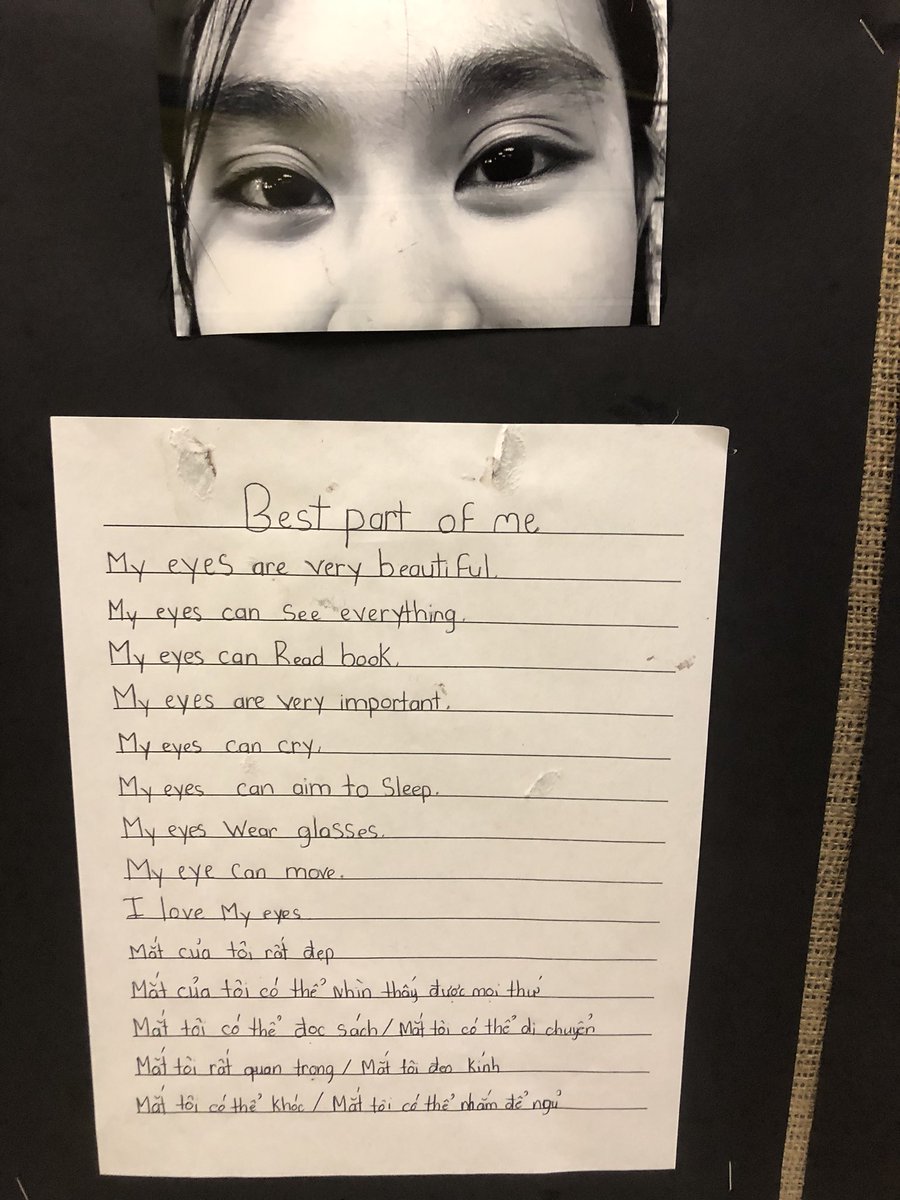 Best part of me
My eyes are very beautiful.
My eyes can See everything.
My eyes can Read book.
My eyes are very important.
My eyes can cry.
My eyes can aim to Sleep.
My eyes Wear glasses.
My eye Can move.
I love My eyes
Mắt của tôi rất đẹp
Mắt của tôi có thể nhìn thấy được mọi thứ
Mắt tôi có thể đọc sách / Mắt tôi có thể di chuyển
Mắt tôi rất quan trọng / Mắt tôi đeo kính
Mắt tôi có thể khóc / Mắt tôi có thể nhắm để ngủ